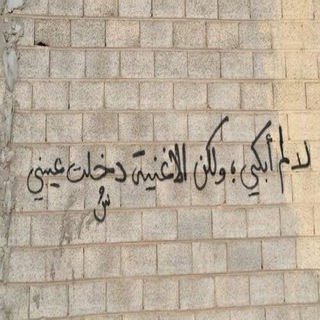 لا لم أبكي ؛ ولكن الاغنية دخلت عيني